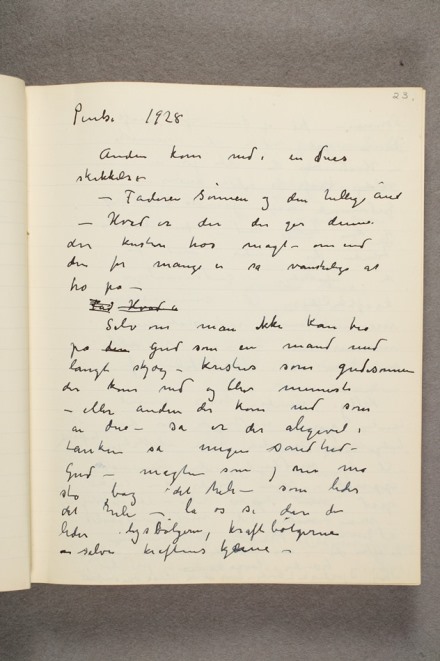 23.
Pinbe 1928
Anden kom ned i en dues
skikkelse
— Faderen Sønnen og den hellige Ånd
— Hvad er der der gør denne
den kristne tros magt — om end
den for mange er så vanskelig at
tro på —
Hvad er
Selv om man ikke kan tro
på den Gud som en mand med
langt skjæg — Kristus som gudesønnen
der kom ned og blev menneske
— eller ånden der kom ned som
en due — så er der alligevel i
tanken så megen sandhed —
Gud — magten som jo må
stå bag det hele — som leder
det hele — la os se den der
leder lysbølgerne, kraftbølgerne
en selve kraftens kjerne —